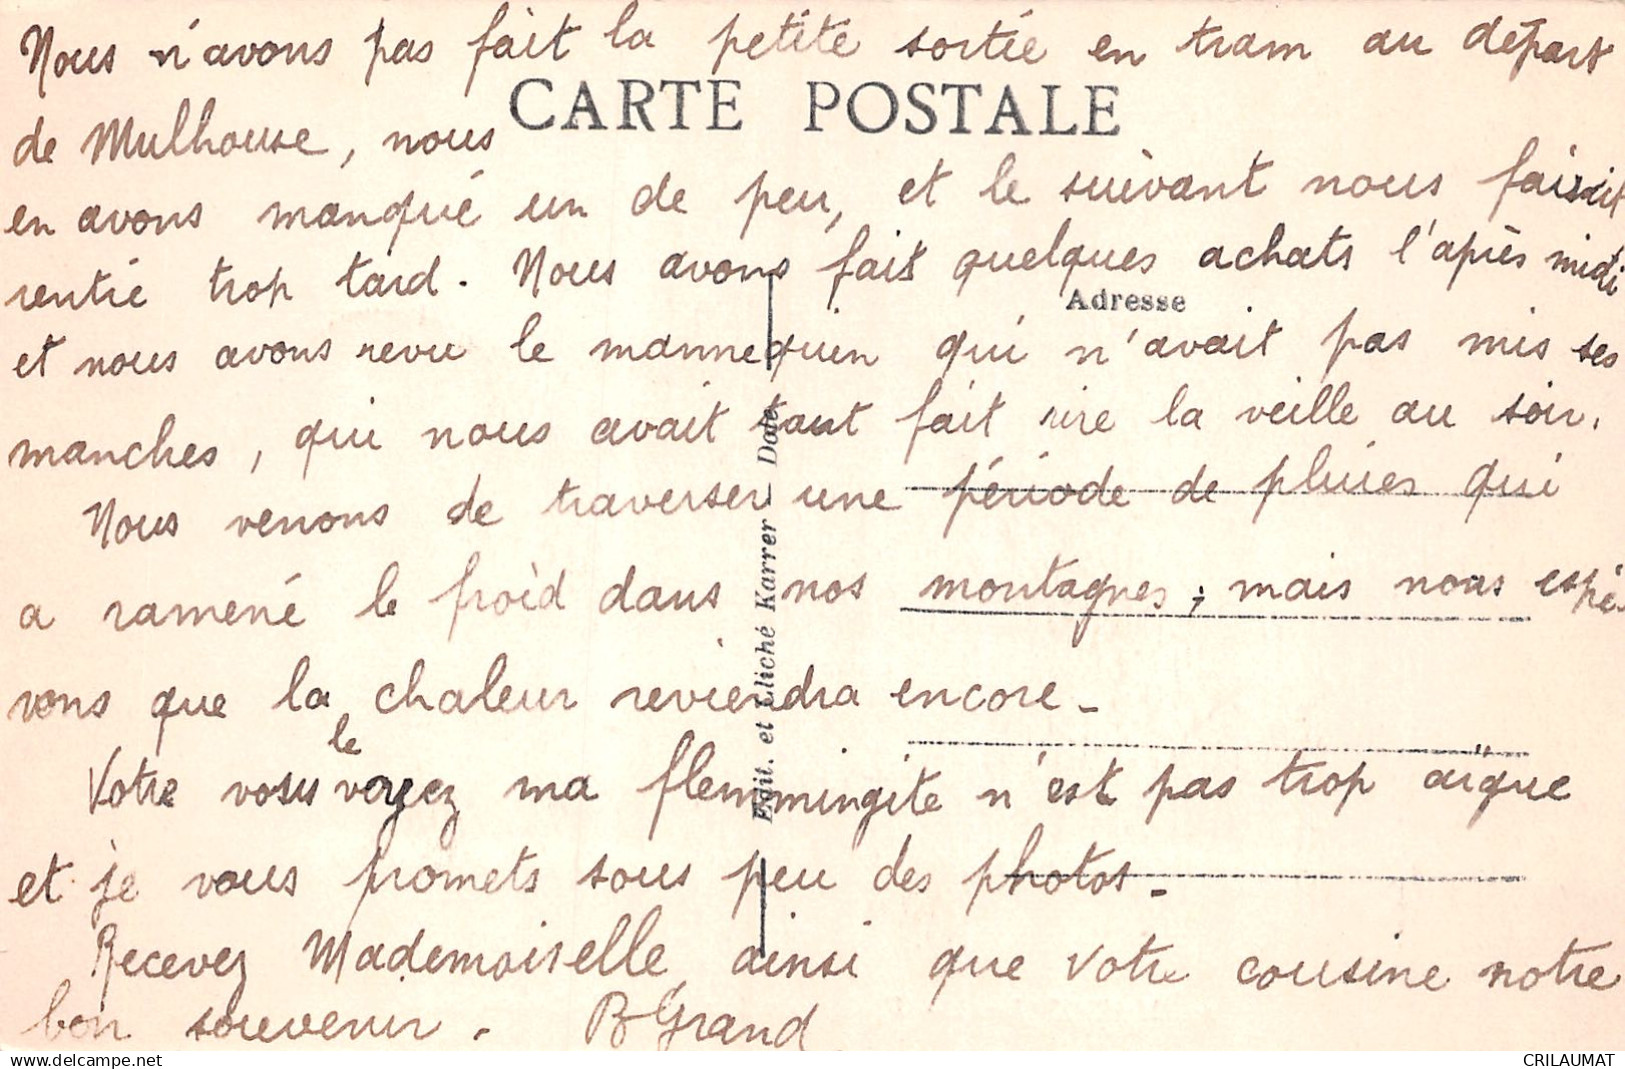 Nous n'avons pas fait la petite sortie en tram au départ
CARTE POSTALE
de Mulhouse, nous
en avons manqué un de peu, et le suivant nous faisait
rentré trop tard. Nous avons fait quelques achats l'après midi
Adresse
et nous avons revu le mannequin qui n'avait pas mis ses
manches, qui nous avait tant fait rire la veille au soir.
Nous venons de traverser une période de pluies qui
a ramené le froid dans nos montagnes, mais nous espé-
rons que la chaleur reviendra encore -
le
Votre vous voyez ma flemmingite n'est pas trop aïgue
et je vous promets sous peu des photos -
Recevez Mademoiselle, ainsi que votre cousine notre
bon souvenir. BGrand
Edit. et Cliché Karrer - Dole
CRILAUMAT
https://www.delcampe.net